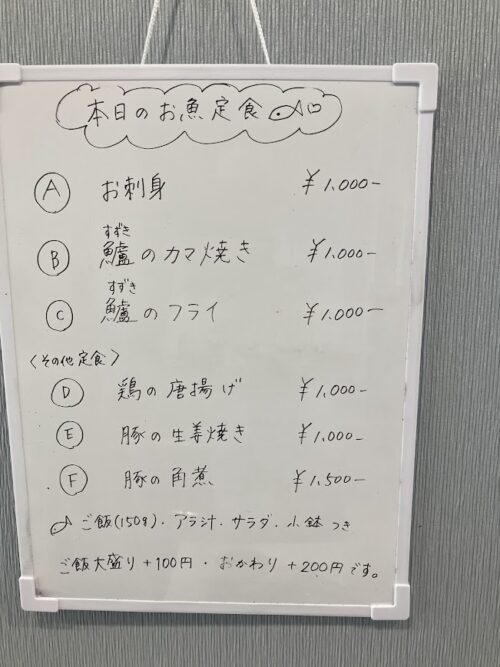 本日のお魚定食
A お刺身 ¥1.000-
すずき
B 鱸のカマ焼き ¥1.000-
すずき
C 鱸のフライ ¥1.000-
〈その他定食〉
D 鶏の唐揚げ ¥1.000-
E 豚の生姜焼き ¥1.000-
F 豚の角煮 ¥1.500-
ご飯(150g)・アラ汁・サラダ・小鉢つき
ご飯大盛り+100円・おかわり+200円です。